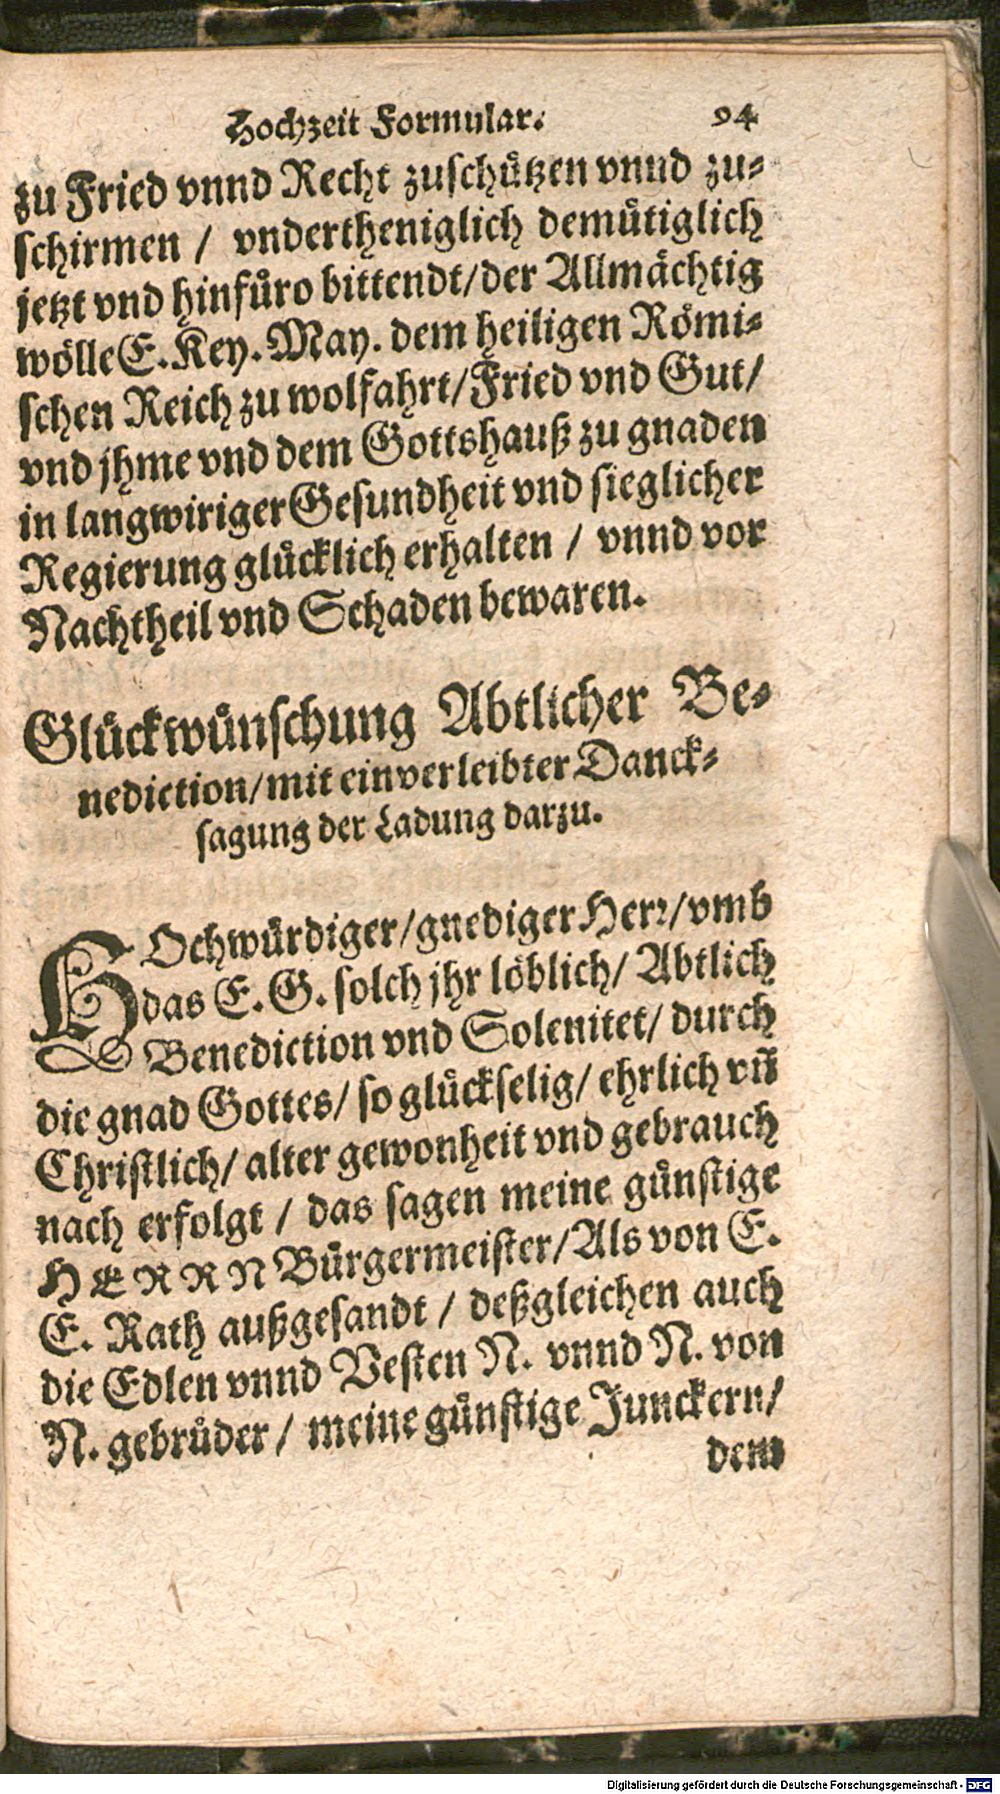 Hochzeit Formular. 94
zu Fried vnnd Recht zuschuͤtzen vnnd zu-
schirmen / vndertheniglich demuͤtiglich
jetzt vnd hinfuͤro bittendt/der Allmaͤchtig
woͤlle E. Key. May. dem heiligen Roͤmi-
schen Reich zu wolfahrt/Fried vnd Gut/
vnd jhme vnd dem Gottshauß zu gnaden
in langwiriger Gesundheit vnd sieglicher
Regierung gluͤcklich erhalten / vnnd vor
Nachtheil vnd Schaden bewaren.
Gluͤckwuͤnschung Abtlicher Be-
nediction/mit einverleibter Danck-
sagung der Ladung darzu.
HOchwuͤrdiger/gnediger Herꝛ/vmb
das E. G. solch jhr loͤblich/ Abtlich
Benediction vnd Solenitet/ durch
die gnad Gottes/ so gluͤckselig/ ehrlich vñ
Christlich/ alter gewonheit vnd gebrauch
nach erfolgt / das sagen meine guͤnstige
HERRN Buͤrgermeister/Als von E.
E. Rath außgesandt / deßgleichen auch
die Edlen vnnd Vesten N. vnnd N. von
N. gebruͤder / meine guͤnstige Junckern/
dem
Digitalisierung gefördert durch die Deutsche Forschungsgemeinschaft - DFG